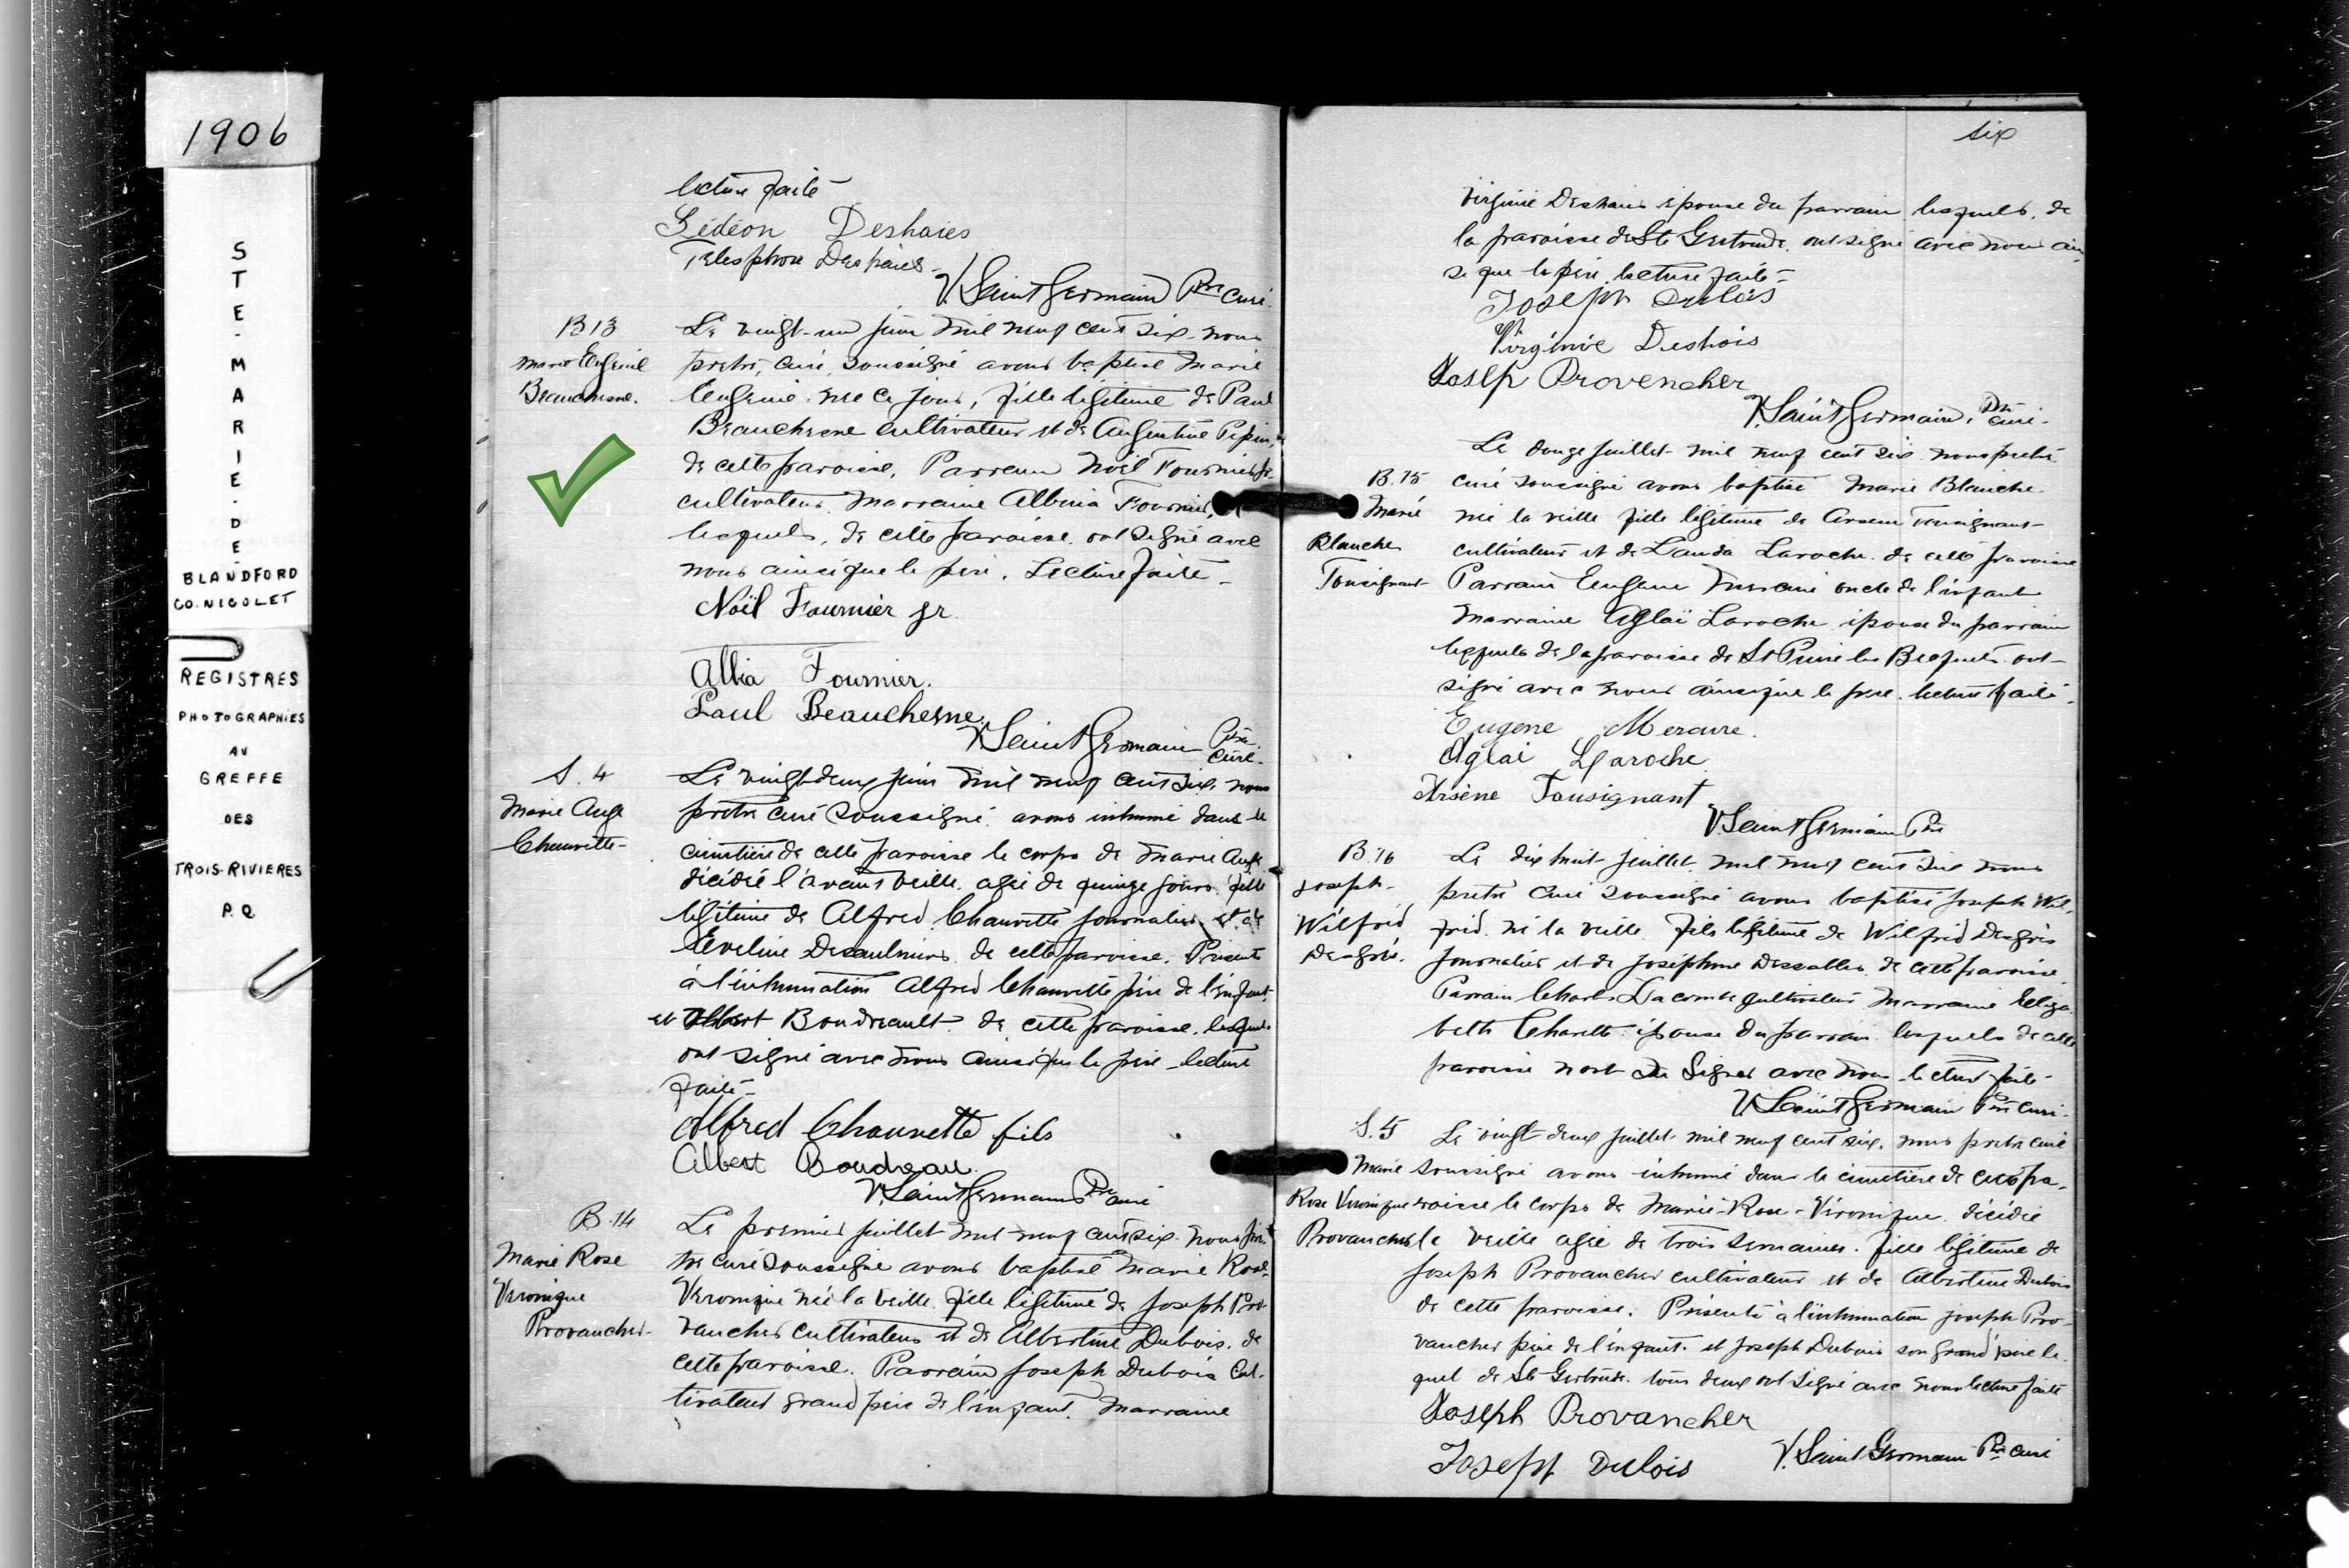 1906
S
T
E
-
M
A
R
I
E
-
D
E
-
BLANDFORD
CO. NICOLET
REGISTRES
PHOTOGRAPHIÉS
AU
GREFFE
DES
TROIS-RIVIERES
P.Q.
lecture faite
Gédéon Deshaies
Télesphore Deshaies
V. Saint Germain Ptre curé.
B 13
Marie Eugénie
Beauchesne.
Le vingt-un juin mil neuf cent six nous
prêtre, curé, soussigné avons baptisé Marie
Eugénie née ce jour, fille légitime de Paul
Beauchesne cultivateur et de Pepin,
de cette paroisse. Parrain Noël Fournier jr
cultivateur Marraine Albina Fournier,
lesquels, de cette paroisse ont signé avec
nous ainsi que le père. Lecture faite -
Noël Fournier jr.
Albia Fournier.
Paul Beauchesne.
V. Saint Germain Ptre curé.
S. 4
Marie Ange
Chauvette -
Le vingt-deux juin mil neuf cent six nous
prêtre curé soussigné avons inhumé dans le
cimetière de cette paroisse le corps de Marie Ange
décédée l'avant veille agée de quinze jours fille
légitime de Alfred Chauvette journalier et de
Eveline Desaulniers de cette paroisse. Présents
à l'inhumation Alfred Chauvette père de l'enfant
et Albert Boudreault de cette paroisse, lesquels
ont signé avec nous ainsi que le père - lecture
faite -
Alfred Chauvette fils
Albert Boudreau.
V. Saint Germain Ptre curé
B. 14
Marie Rose
Véronique
Provancher -
Le premier juillet mil neuf cent six nous prê-
tre curé soussigné avons baptisé Marie Rose
Véronique née la veille fille légitime de Joseph Pro-
vancher cultivateur et de Albertine Dubois. de
cette paroisse. Parrain Joseph Dubois cul-
tivateur grand père de l'enfant. Marraine
six
Virginie Deshaies épouse du parrain lesquels, de
la paroisse de Ste Gertrude ont signé avec nous ain-
si que le père, lecture faite -
Joseph Dubois
Virginie Deshais
Joseph Provencher
V. Saint Germain, Ptre curé.
B. 15
Marie
Blanche
Tousignant
Le douze juillet mil neuf cent six nous prêtre
curé soussigné avons baptisé Marie Blanche
née la veille fille légitime de Arsène Tousignant
cultivateur et de Landa Laroche de cette paroisse
Parrain Eugène Mercure oncle de l'enfant
Marraine Aglaé Laroche épouse du parrain
lesquels de la paroisse de St Pierre les Becquets ont
signé avec nous ainsi que le père. lecture faite.
Eugene Mercure.
Aglaé Laroche
Arsène Tousignant
V. Saint Germain Ptre
B. 16
Joseph -
Wilfrid
Desgré.
Le dix huit juillet mil neuf cent six nous
prêtre curé soussigné avons baptisé Joseph Wil-
frid né la veille fils légitime de Wilfrid
journalier et de Joséphine de cette paroisse
Parrain Charles Lacombe cultivateur Marraine Eliza
beth Charette épouse du parrain lesquels de cette
paroisse n'ont su signer avec nous - lecture faite -
V. Saint Germain Ptre curé.
S. 5
Marie
Rose Véronique
Provancher
Le vingt deux juillet mil neuf cent six, nous prêtre curé
soussigné avons inhumé dans le cimetière de cette pa-
roisse le corps de Marie-Rose-Véronique décédée
la veille agée de trois semaines. fille légitime de
Joseph Provancher cultivateur et de Albertine Dubois
de cette paroisse. Présents à l'inhumation Joseph Pro-
vancher père de l'enfant et Joseph Dubois son grand père le-
quel de Ste Gertrude. tous deux ont signé avec nous lecture faite
Joseph Provancher
Joseph Dubois
V. Saint Germain Ptre curé